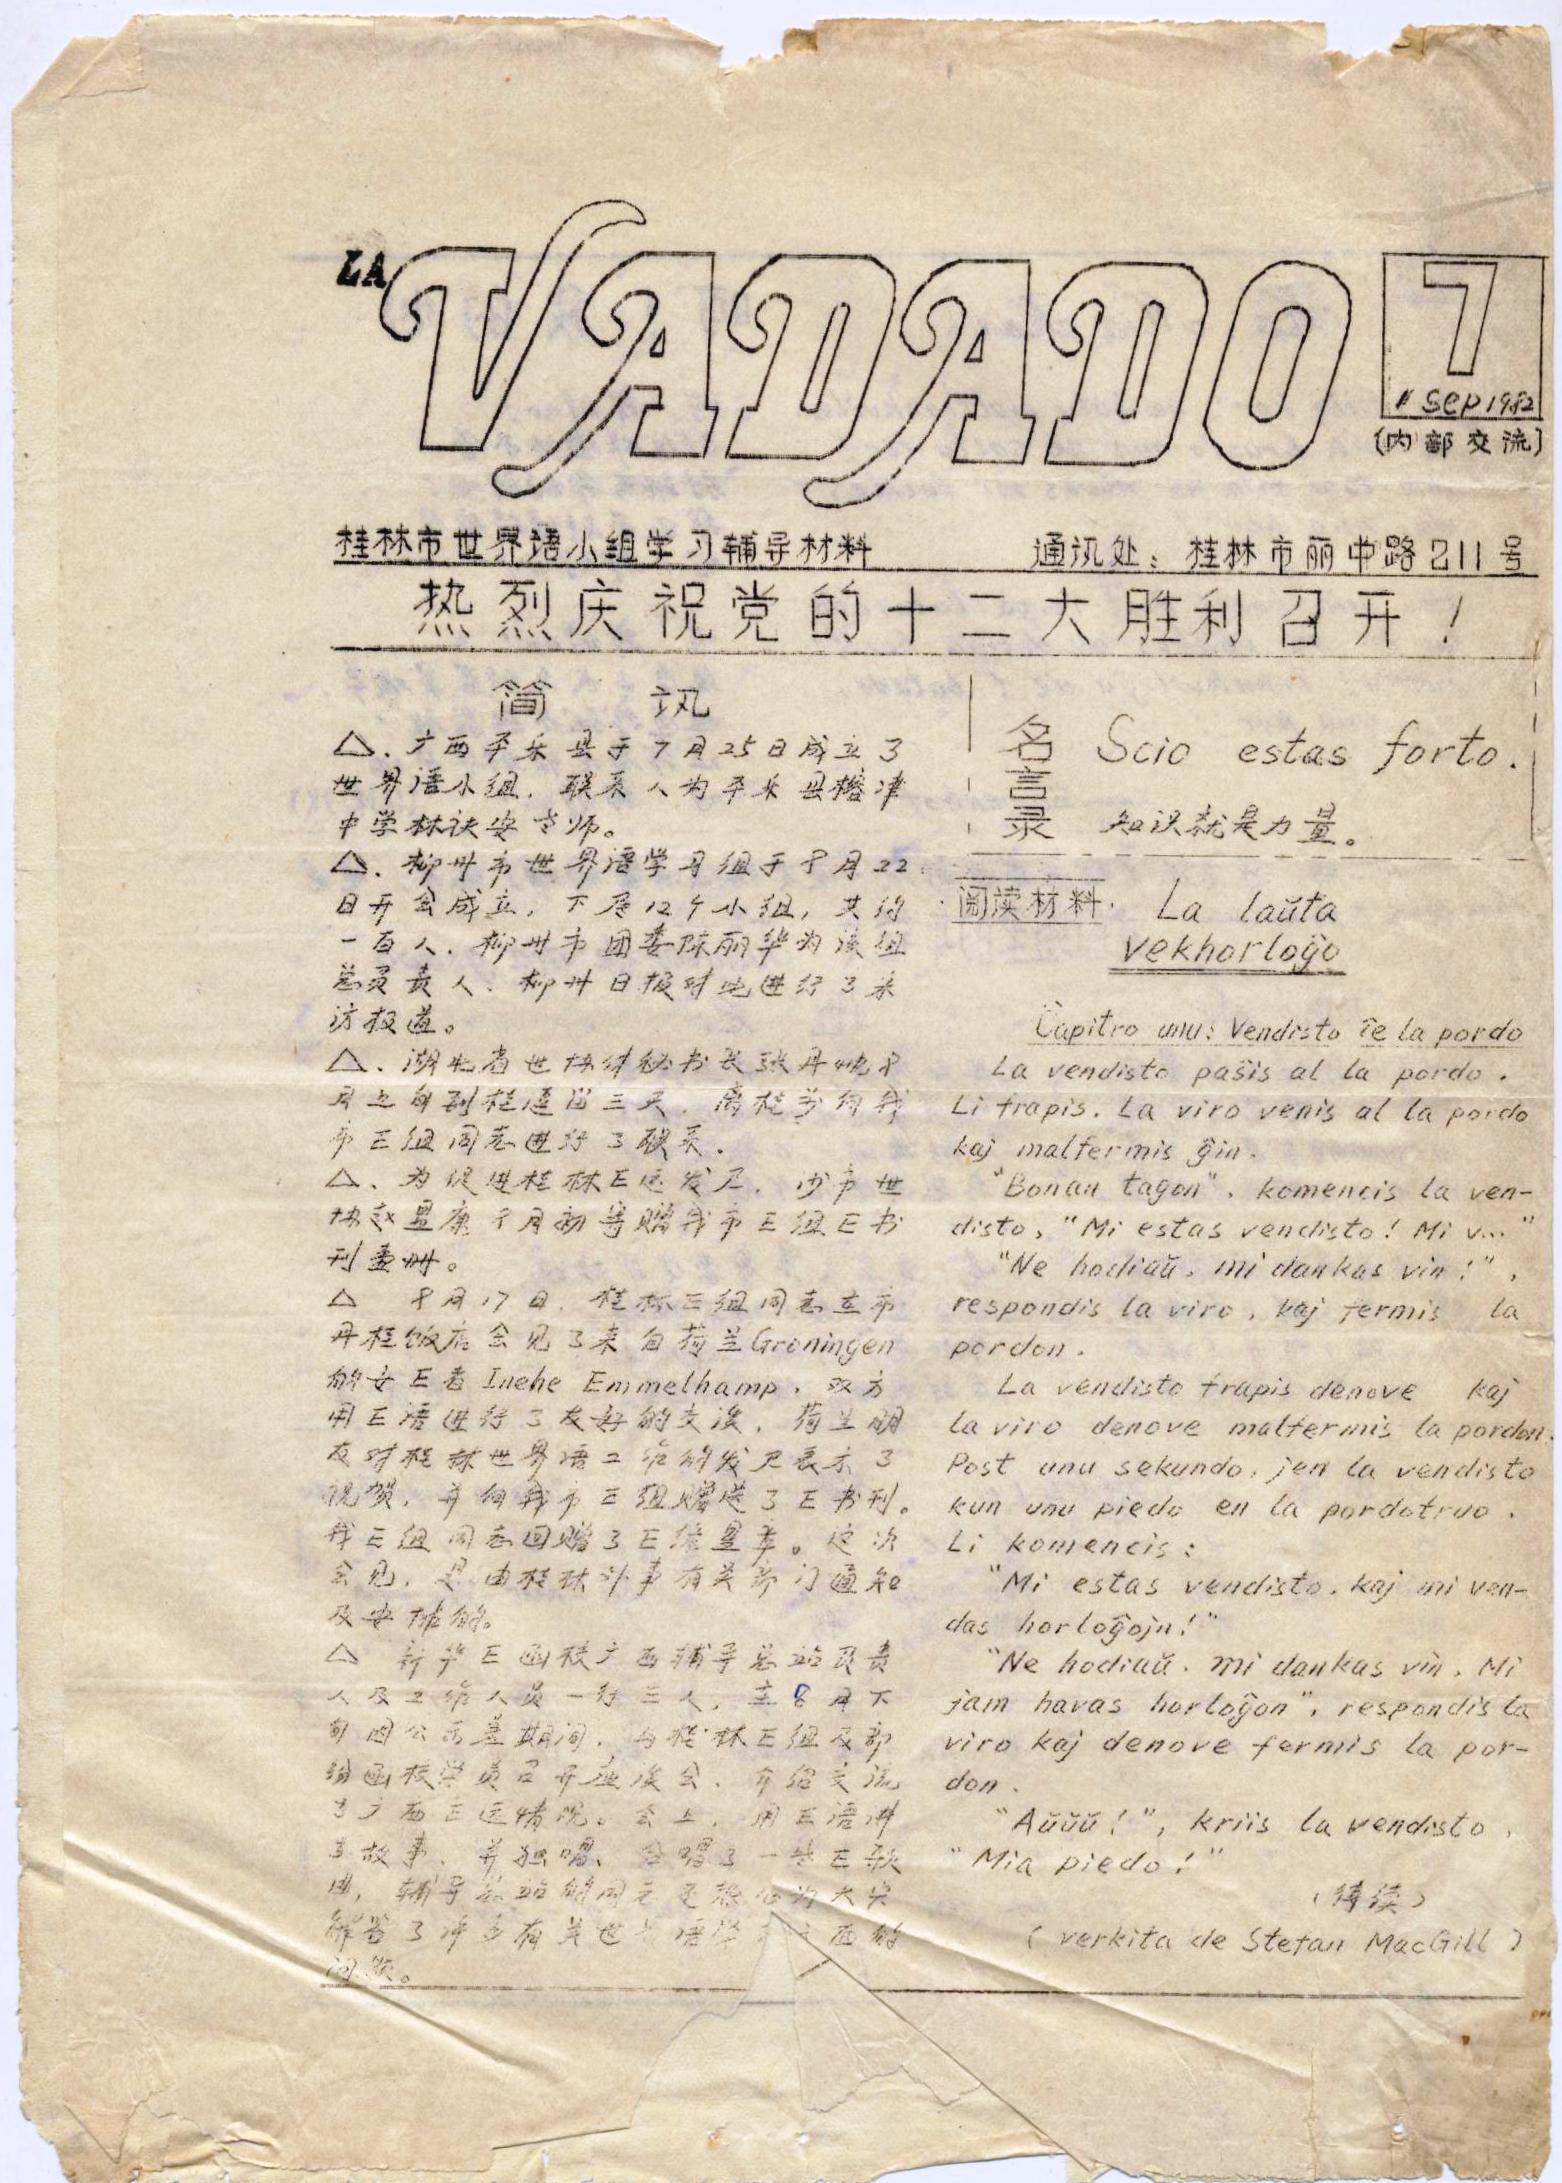 LA VADADO
7
Sep 1982
(内部交流)
桂林市世界语小组学习辅导材料 通讯处：桂林市丽中路211号
热烈庆祝党的十二大胜利召开！
简 讯
△、广西平乐县于7月25日成立了
世界语小组，联系人为平乐县榕津
中学林 安老师。
△、柳州市世界语学习组于8月22
日开会成立，下属12个小组，共约
一百人、柳州市团委陈丽华为该组
总负责人、柳州日报对此进行了采
访报道。
△、湖北省世协付秘书长张丹忱8
月上旬到桂逗留三天，离桂前向我
市E组同志进行了联系.
△、为促进桂林E运发尸，沙市世
协 昱康8月初寄赠我市E组E书
刊 册。
△ 8月17日，桂林E组同志在市
丹桂饭店会见了来自荷兰Groningen
的女E者Inehe Emmelhamp，双方
用E语进行了友好的交谈，荷兰朋
友对桂林世界语工作的发尸表示了
祝贺，并向我市E组赠送了E书刊。
我E组同志回赠了E绿星章。这次
会见，是由桂林外事有关部门通知
及安排的。
△ 新华E函校广西辅导总站负责
人及工作人员一行三人，在8月下
旬因公出差期间，与桂林E组及部
份函校学员召开座谈会、介绍交流
了广西E运情况。会上，用E语讲
了故事、并独唱、合唱了一些E歌
曲，辅导总站的同志更热心为大家
解答了许多有关世界语学 方面的
问题。
名言录
Scio estas forto.
知识就是力量。
阅读材料
La laŭta
vekhorloĝo
Ĉapitro unu: Vendisto ĉe la pordo
La vendisto paŝis al la pordo.
Li frapis. La viro venis al la pordo
kaj malfermis ĝin.
"Bonan tagon", komencis la ven-
disto, "Mi estas vendisto! Mi v..."
"Ne hodiaŭ, mi dankas vin!",
respondis la viro, kaj fermis la
pordon.
La vendisto frapis denove kaj
la viro denove malfermis la pordon.
Post unu sekundo, jen la vendisto
kun unu piedo en la pordotruo.
Li komencis:
"Mi estas vendisto, kaj mi ven-
das horloĝojn!"
"Ne hodiaŭ, mi dankas vin. Mi
jam havas horloĝon", respondis la
viro kaj denove fermis la por-
don.
"Aŭŭŭ!", kriis la vendisto,
"Mia piedo!"
(待续)
(verkita de Stefan MacGill)